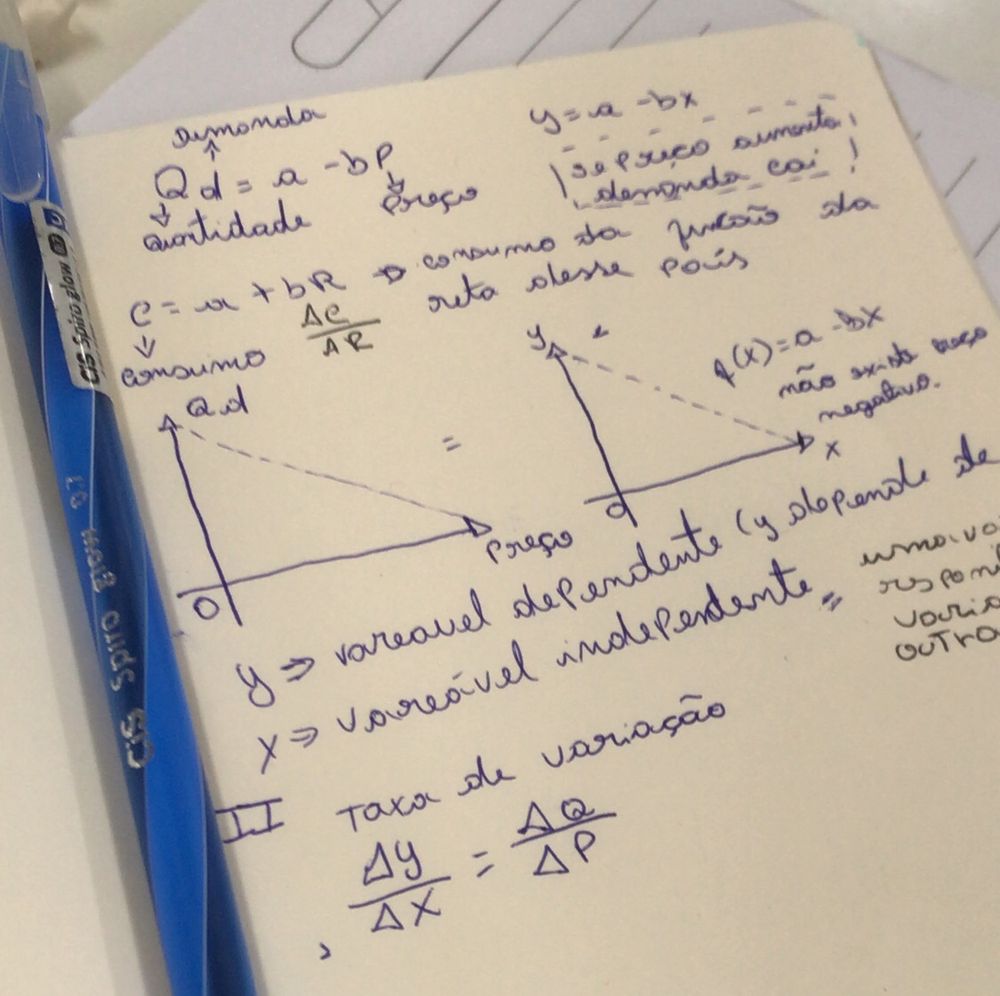 demanda
Qd = a - bP
quantidade
Preço
y = a - bx
se preço aumenta,
demanda cai!
C = a + bR → consumo da função da
reta desse país
consumo
ΔC
ΔR
Qd
Preço
0
=
y
x
0
f(x) = a - bx
não existe preço
negativo.
y ⇒ vareavel dependente (y depende de
x ⇒ vareável independente =
II
Taxa de variação
Δy/Δx = ΔQ/ΔP
CiS Spiro glow
CiS Spiro glow 0.7